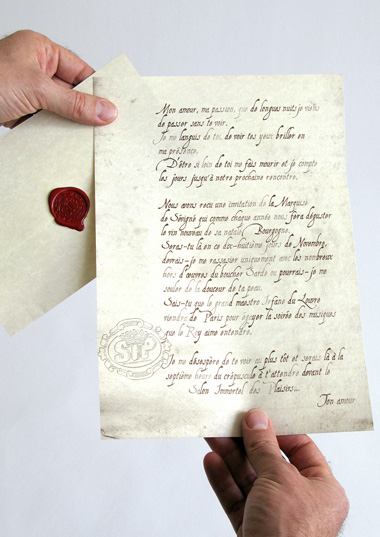 Mon amour, ma passion, que de longues nuits je viens
de passer sans te voir.
Je me languis de toi, de voir tes yeux briller en
ma présence.
D'être si loin de toi me fais mourir et je compte
les jours jusqu'à notre prochaine rencontre.
Nous avons recu une invitation de la Marquise
de Sévigné qui comme chaque année nous fera déguster
le vin nouveau de sa natale Bourgogne.
Seras-tu là en ce dix-huitième jours de Novembre,
devrais-je me rassasier uniquement avec les nombreux
hors d'œuvres du boucher Sarde ou pourrais-je me
souler de la douceur de ta peau.
Sais-tu que le grand maestre Stefane du Louvre
viendra de Paris pour égayer la soirée des musiques
que le Roy aime entendre.
Je me désespère de te voir au plus tôt et serais là à la
septième heure du crépuscule à t'attendre devant le
Salon Immortel des Plaisirs...
Ton amour